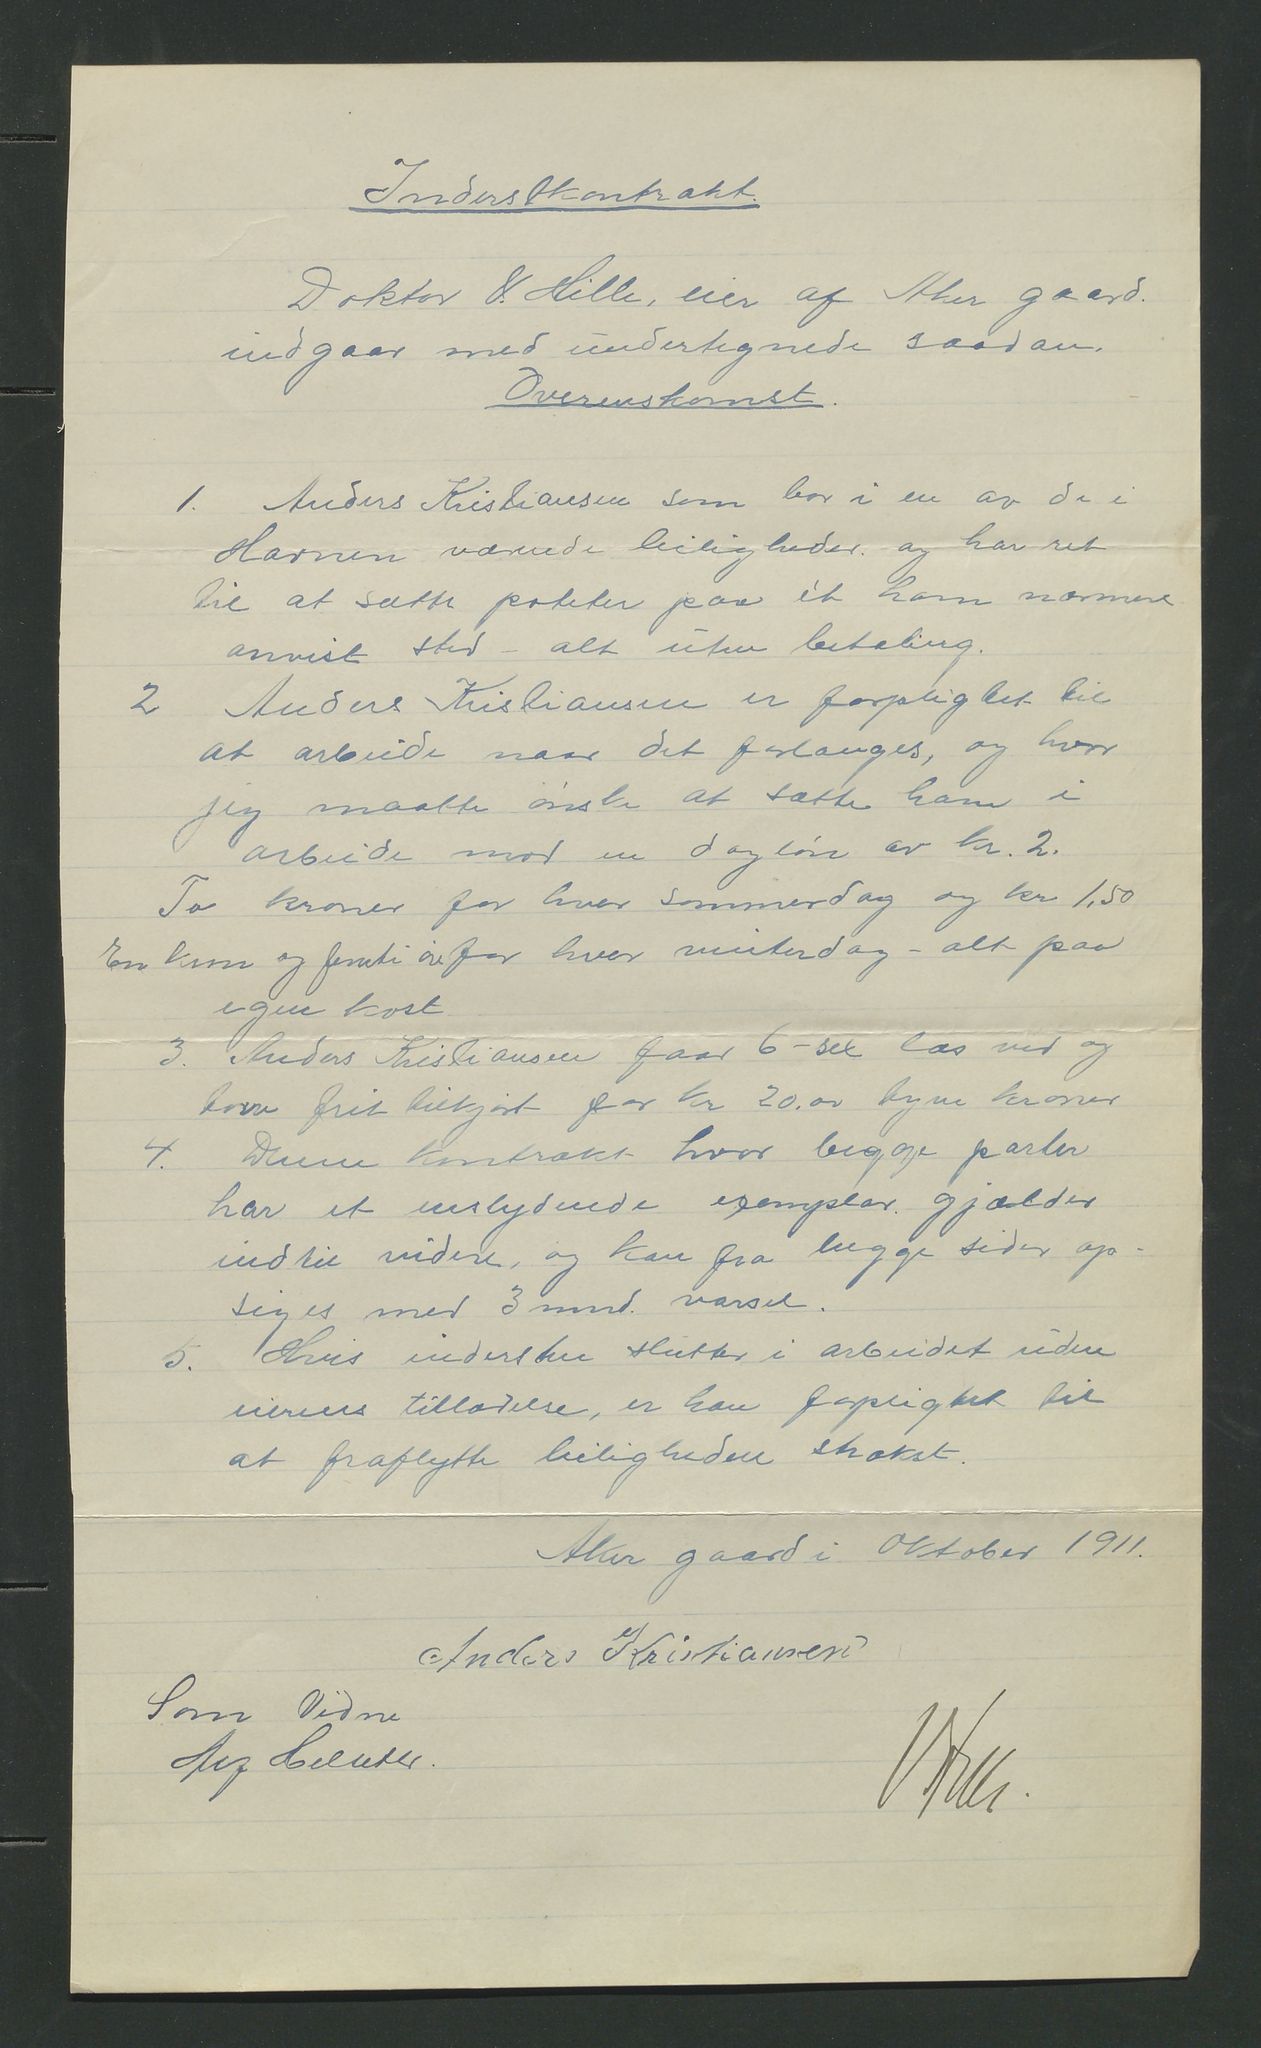 Inderstkontrakt.
Doktor V. Hille, eier af Aker gaard.
indgaar med undertegnede saadan.
Overenskomst.
1. Anders Kristiansen som bor i en av de i
Havnen værende leiligheder. og har ret
til at sætte poteter paa et ham nærmere
anvist sted - alt uten betaling.
2 Anders Kristiansen er forpligtet til
at arbeide naar det forlanges, og hvor
jeg maatte ønske at sætte ham i
arbeide mod en dagløn av kr. 2.
To kroner for hver sommerdag og kr 1,50
En kron og femti øre for hver vinterdag - alt paa
egen kost
3. Anders Kristiansen faar 6 - sex læs ved og
frit tilkjørt for kr 20.00 tyve kroner
4. Denne kontrakt hvor begge parter
har et enslydende exemplar. gjælder
indtil videre, og kan fra begge sider op-
siges med 3 mnd. varsel.
5. Hvis indersten slutter i arbeidet uden
eierens tilladelse, er han forpligtet til
at fraflytte leiligheden strakst.
Aker gaard i Oktober 1911.
Anders Kristiansen
Som Vidne
VHille.